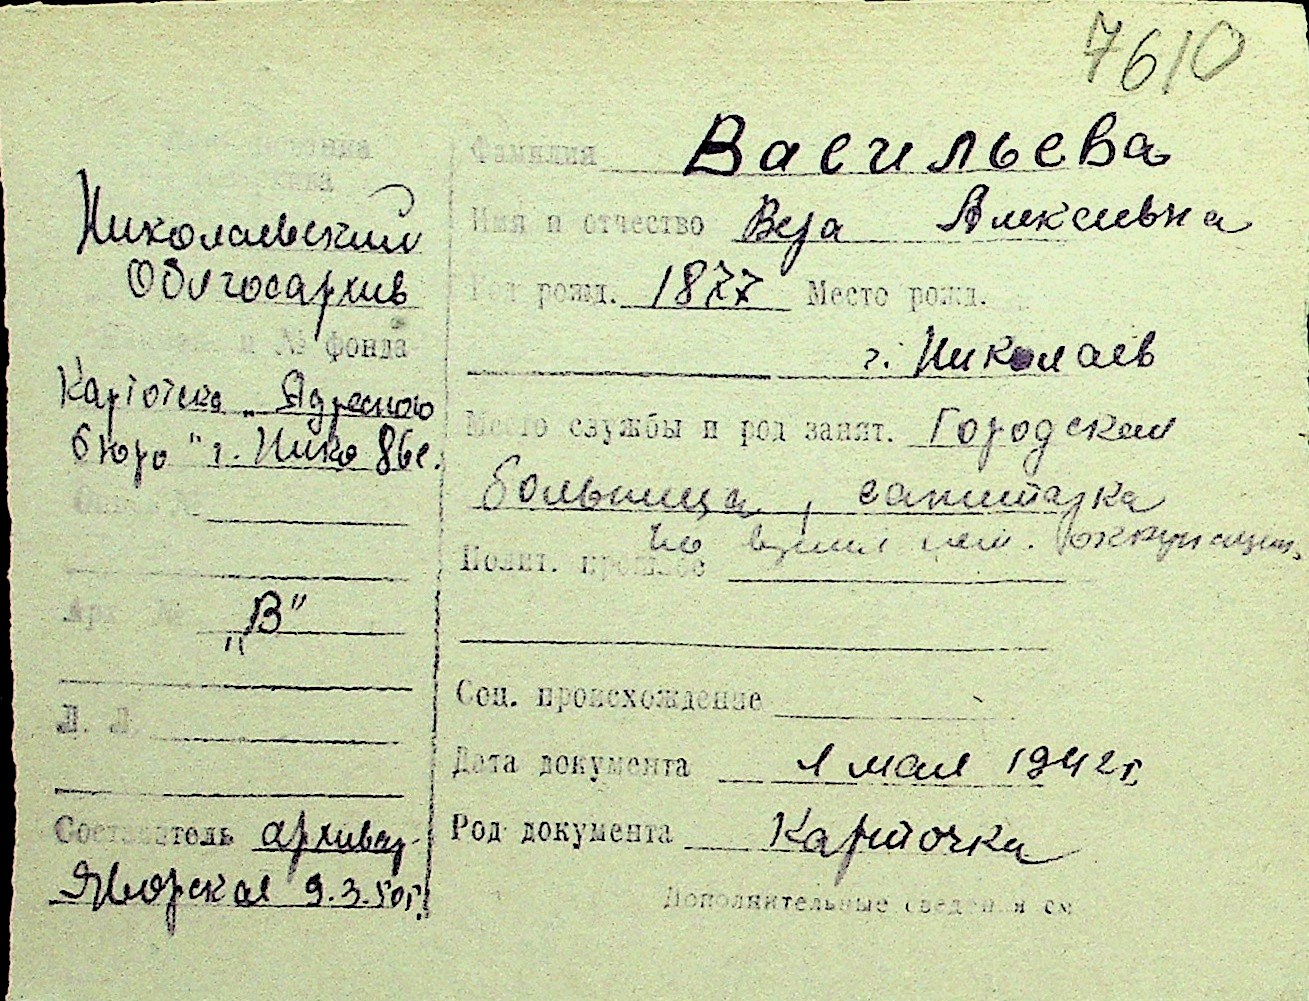 7610
Николаевский
Облгосархив
и № фонда
Картотека „Адресного
бюро" г. Нико
Опись №
„В"
Арх. №
Л. Л.
Составитель архивар.
Яворская 9.3.50г.
Фамилия Васильева
Имя и отчество Вера Алексеевна
Год рожд. 1877 Место рожд.
г. Николаев
Место службы и род занят. Городская
больница, санитарка
во время нем. оккупации.
Полит. прошлое
Соц. происхождение
Дата документа 1 мая 1942 г.
Род документа Карточка
Дополнительные сведения см